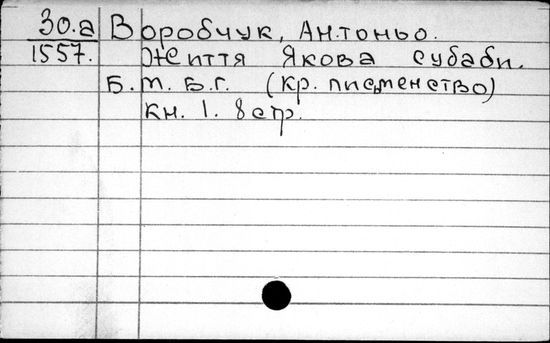 30.а Воробчук, Антоньо.
1557. Життя Якова Субаби.
Б.м. Б.г. (кр. письменство)
кн. 1. 8 стр.